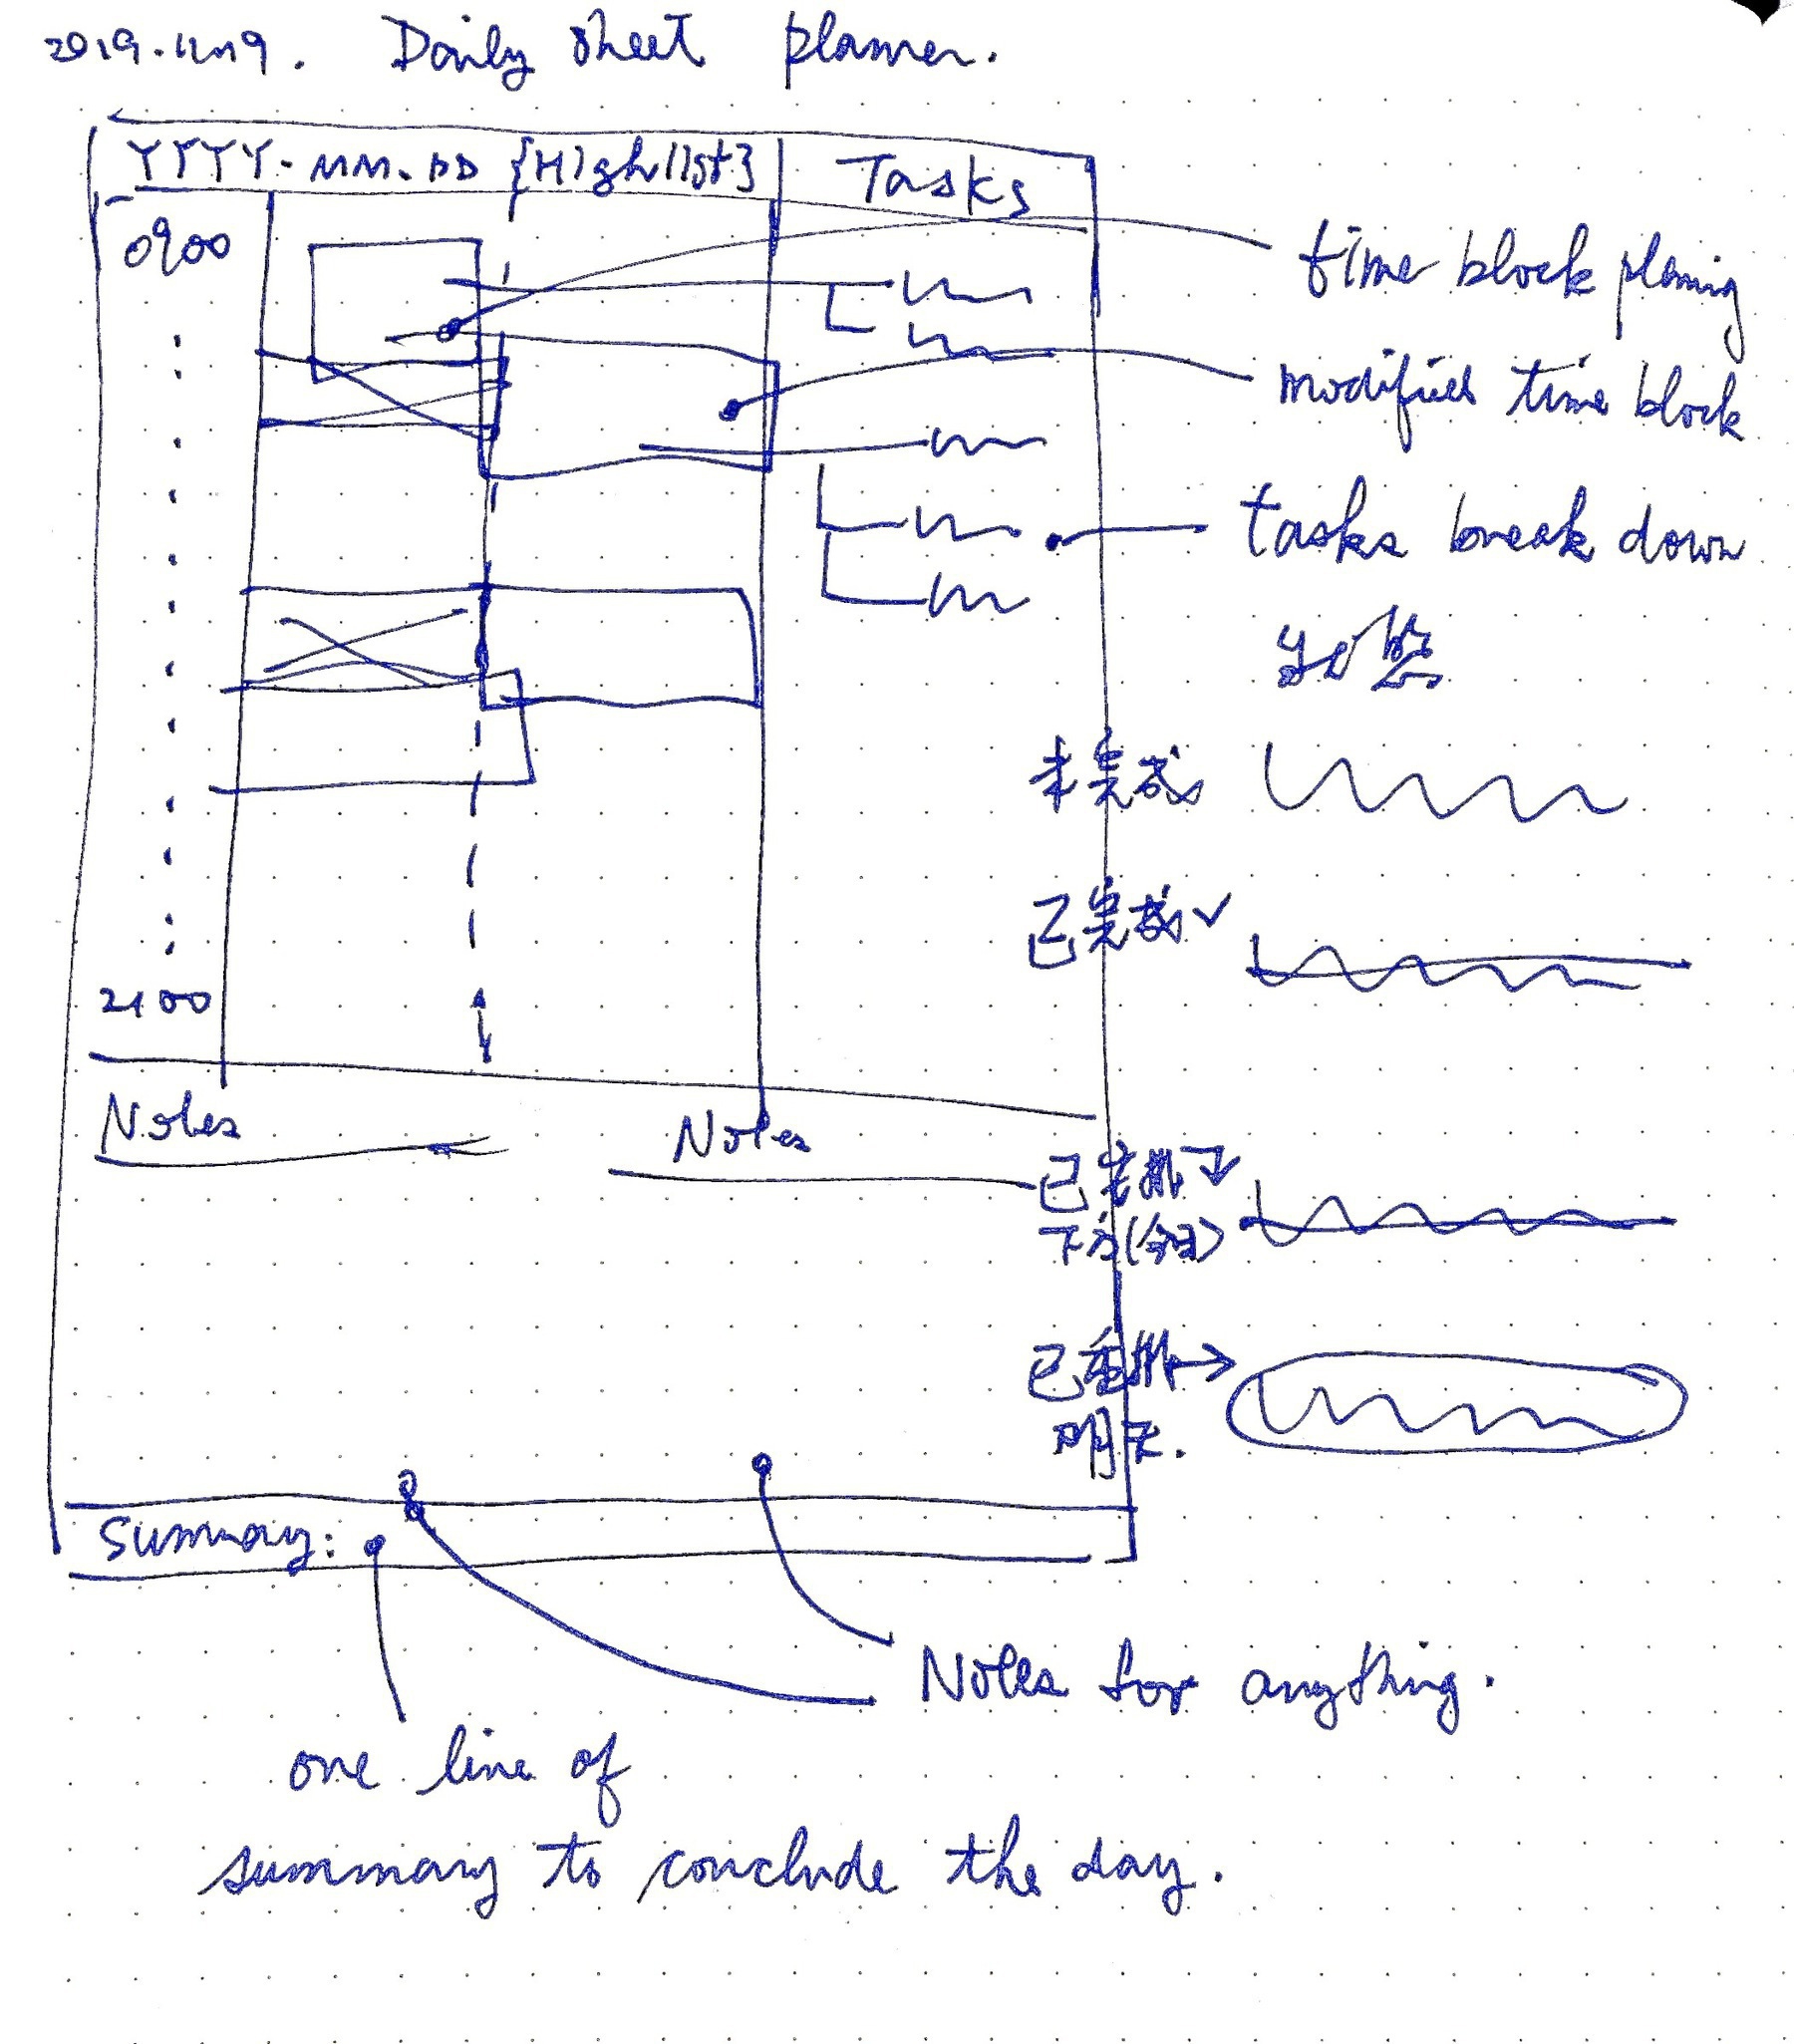 2019.11.19. Daily sheet planner.
YYYY.MM.DD {Highlist}
Tasks
0900
time block planing
modified time block
tasks break down
未完成
已完成✓
2100
Notes
Notes
已安排↓
下方(今日)
已重排→
明天.
Summary:
Notes for anything.
one line of
summary to conclude the day.